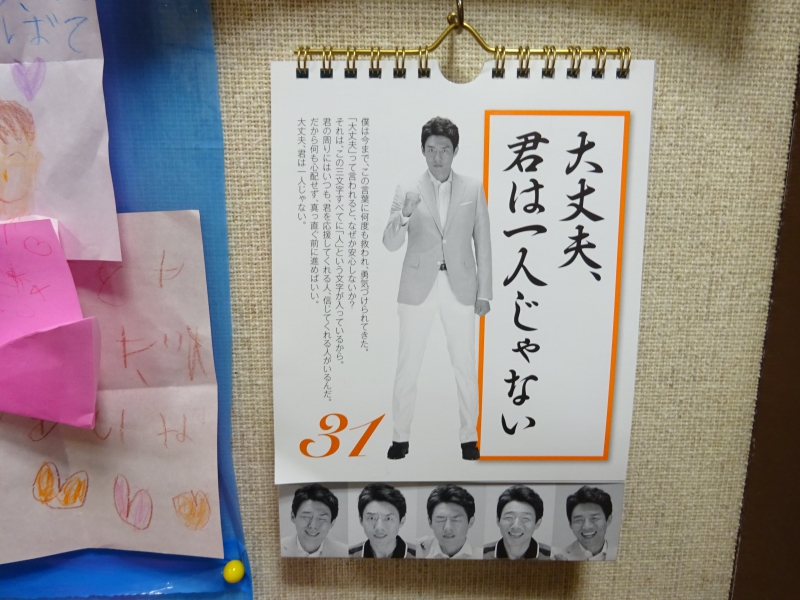 大丈夫、
君は一人じゃない
僕は今まで、この言葉に何度も救われ、勇気づけられてきた。
「大丈夫」って言われると、なぜか安心しないか？
それは、この三文字すべてに「人」という文字が入っているから。
君の周りにはいつも、君を応援してくれる人、信じてくれる人がいるんだ。
だから何も心配せず、真っ直ぐ前に進めばいい。
大丈夫、君は一人じゃない。
31
ばて